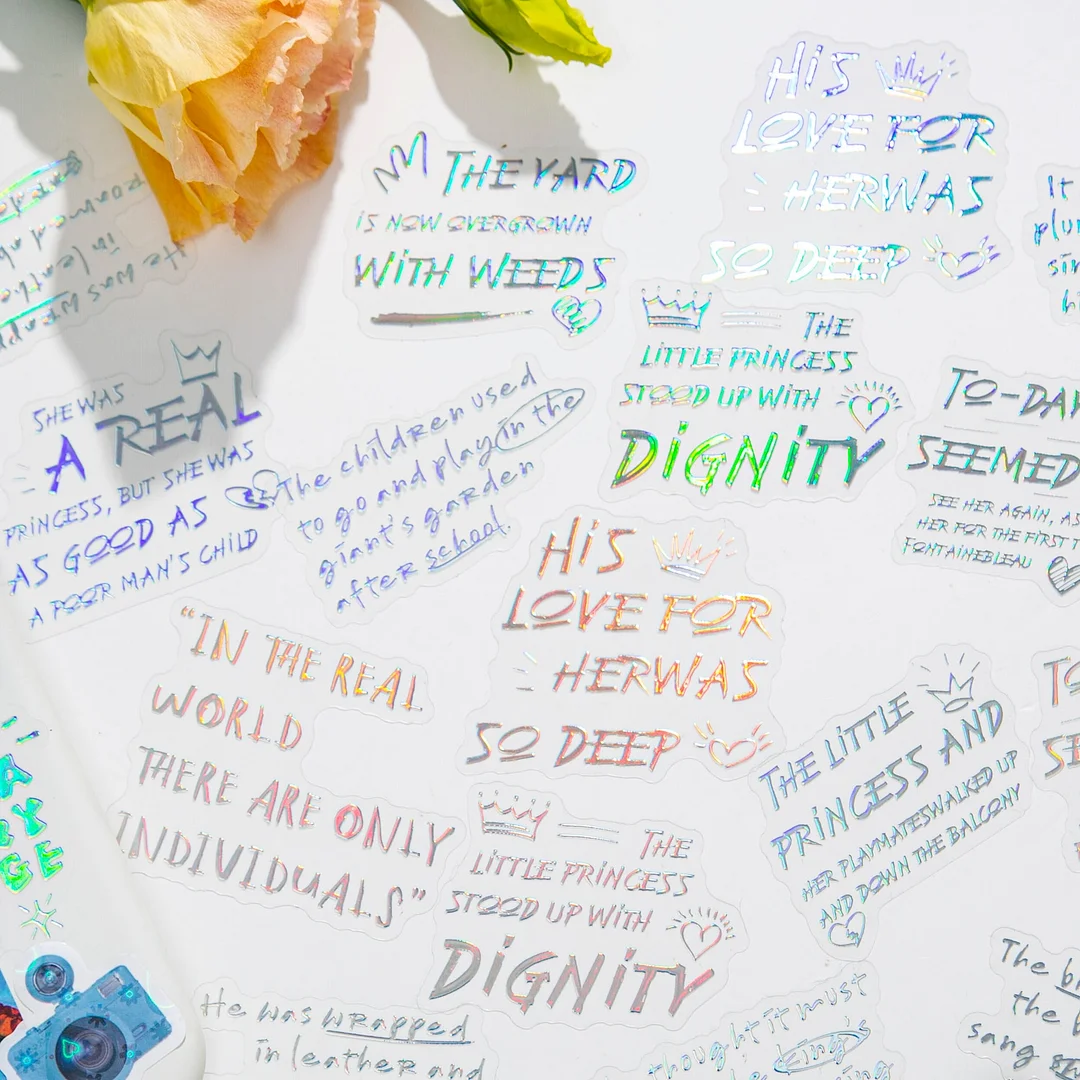 HIS
LOVE FOR
HERWAS
SO DEEP
THE YARD
IS NOW OVERGROWN
WITH WEEDS
It
THE
LITTLE PRINCESS
STOOD UP WITH
DIGNITY
SHE WAS
A REAL
PRINCESS, BUT SHE WAS
AS GOOD AS
A POOR MAN'S CHILD
The children used
to go and play in the
giant's garden
after school.
TO-DAY
SEEMED
SEE HER AGAIN, AS
HER FOR THE FIRST T
FONTAINEBLEAU
HIS
LOVE FOR
HERWAS
SO DEEP
"IN THE REAL
WORLD
THERE ARE ONLY
INDIVIDUALS"
THE LITTLE
PRINCESS AND
HER PLAYMATESWALKED UP
AND DOWN THE BALCONY
TO
SE
THE
LITTLE PRINCESS
STOOD UP WITH
DIGNITY
He was wrapped
in leather and
thought it must
king's
The
the
sang